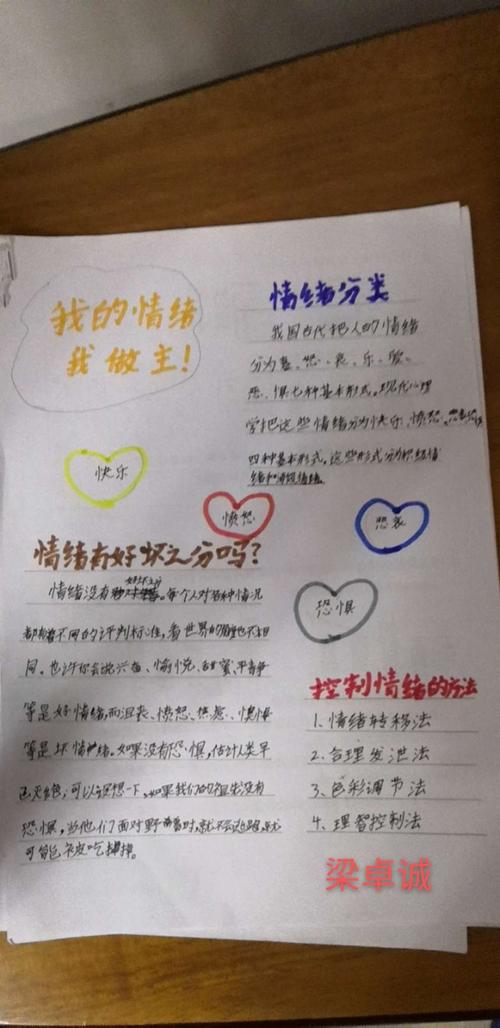 我的情绪
我做主！
情绪分类
我国古代把人的情绪
分为喜、怒、哀、乐、爱、
恶、惧七种基本形式。现代心理
学把这些情绪分为快乐、愤怒、
四种基本形式，这些形式分为积极情
绪和消极情绪。
快乐
愤怒
悲哀
恐惧
情绪有好坏之分吗？
情绪没有好坏之分。每个人对各种情况
都有着不同的评判标准，看世界的角度也不相
同。也许你会说兴奋、愉悦、甜蜜、平静
等是好情绪，而沮丧、愤怒、焦虑、懊悔
等是坏情绪。如果没有恐惧，估计人类早
已灭绝；可以设想一下，如果我们的祖先没有
恐惧，当他们面对野兽时，就不会逃跑，就
可能已被吃掉。
控制情绪的方法
1、情绪转移法
2、合理发泄法
3、色彩调节法
4、理智控制法
梁卓诚